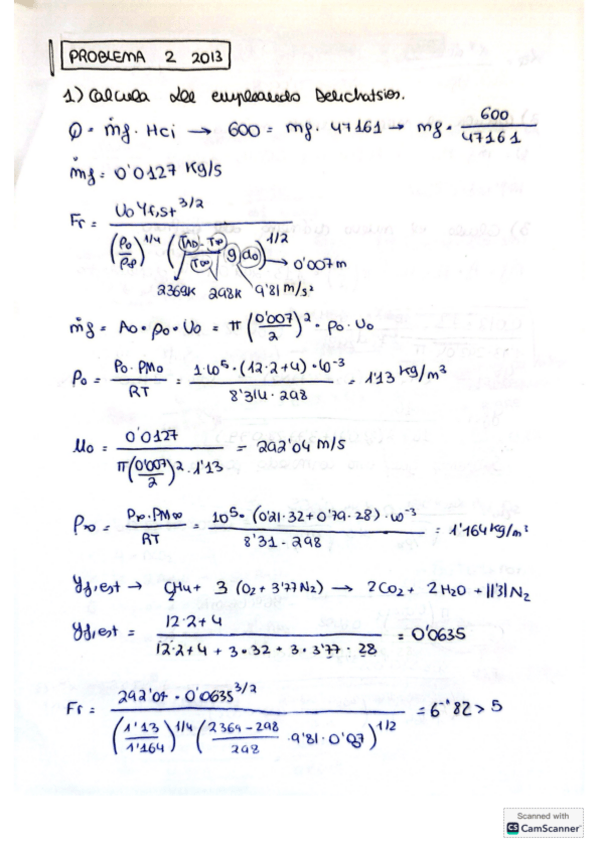 PROBLEMA 2 2013
1) Calcula dee empleando Delichatsios.
Q = ṁg · Hci → 600 = mg · 47161 → mg = 600/47161
ṁg = 0'0127 Kg/s
Fr = Uo Yf,st^3/2 / (ρo/ρ∞)^1/4 (TAD - T∞/T∞ g do)^1/2 → 0'007m
2369K 298K 9'81 m/s²
ṁg = Ao · ρo · Uo = π (0'007/2)² · ρo · Uo
ρo = Po · PMo / RT = 1·10⁵ · (12·2+4) · 10⁻³ / 8'314 · 298 = 1'13 kg/m³
Uo = 0'0127 / π(0'007/2)² · 1'13 = 292'04 m/s
ρ∞ = P∞ · PM∞ / RT = 10⁵ · (0'21·32 + 0'79·28) · 10⁻³ / 8'31 · 298 = 1'164 kg/m³
Yf,est → C2H4 + 3 (O2 + 3'77N2) → 2CO2 + 2H2O + 11'31N2
Yf,est = 12·2+4 / 12·2+4 + 3·32 + 3·3'77·28 = 0'0635
Fr = 292'04 · 0'0635^3/2 / (1'13/1'164)^1/4 (2369-298/298 · 9'81 · 0'007)^1/2 = 6'82 > 5
Scanned with
CS CamScanner